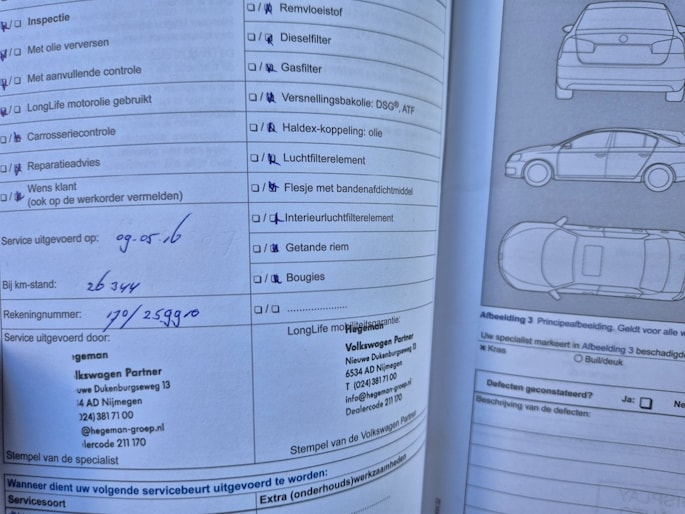 / ☐ Inspectie
/ ☐ Met olie verversen
/ ☐ Met aanvullende controle
/ ☐ LongLife motorolie gebruikt
☐ / Carrosseriecontrole
☐ / Reparatieadvies
☐ / Wens klant
(ook op de werkorder vermelden)
Service uitgevoerd op: 09-05-16
Bij km-stand: 26344
Rekeningnummer: 170/259910
Service uitgevoerd door:
Hegeman
lkswagen Partner
uwe Dukenburgseweg 13
4 AD Nijmegen
024) 381 71 00
@hegeman-groep.nl
lercode 211 170
Stempel van de specialist
☐ / Remvloeistof
☐ / Dieselfilter
☐ / Gasfilter
☐ / Versnellingsbakolie: DSG®, ATF
☐ / Haldex-koppeling: olie
☐ / Luchtfilterelement
☐ / Flesje met bandenafdichtmiddel
☐ / Interieurluchtfilterelement
☐ / Getande riem
☐ / Bougies
☐ / ☐ ...................
LongLife mobiliteitsgarantie:
Hegeman
Volkswagen Partner
Nieuwe Dukenburgseweg
6534 AD Nijmegen
T (024) 381 71 00
info@hegeman-groep.nl
Dealercode 211 170
Stempel van de Volkswagen Partner
Wanneer dient uw volgende servicebeurt uitgevoerd te worden:
Servicesoort
Extra (onderhouds)werkzaamheden
Afbeelding 3 Principeafbeelding. Geldt voor alle
Uw specialist markeert in Afbeelding 3 beschadigd
× Kras ○ Buil/deuk
Defecten geconstateerd? Ja: ☐ Ne
Beschrijving van de defecten: